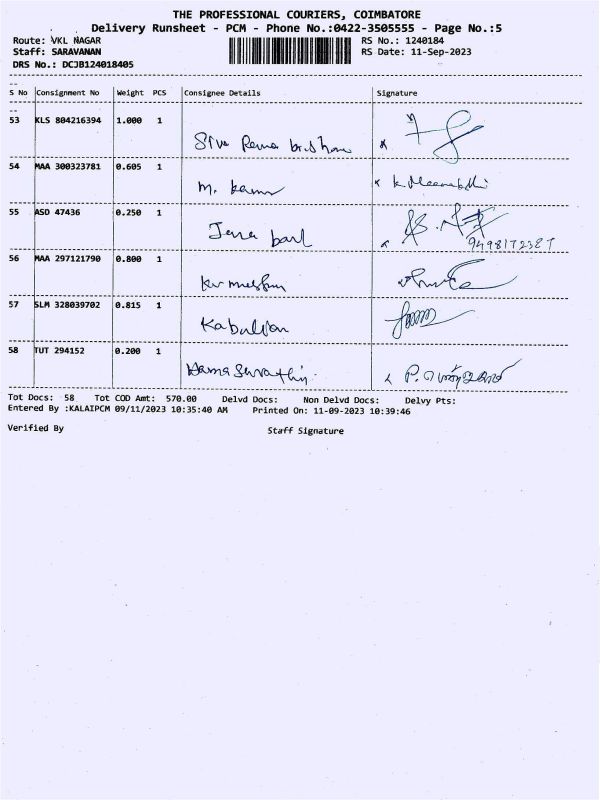 THE PROFESSIONAL COURIERS, COIMBATORE
Delivery Runsheet - PCM - Phone No.:0422-3505555 - Page No.:5
Route: VKL NAGAR RS No.: 1240184
Staff: SARAVANAN RS Date: 11-Sep-2023
DRS No.: DCJB124018405
S No Consignment No Weight PCS Consignee Details Signature
53 KLS 804216394 1.000 1
Siva Rama
54 MAA 300323781 0.605 1
M. K. Meenakshi
55 ASD 47436 0.250 1
9498172387
56 MAA 297121790 0.800 1
57 SLM 328039702 0.815 1
58 TUT 294152 0.200 1
P.
Tot Docs: 58 Tot COD Amt: 570.00 Delvd Docs: Non Delvd Docs: Delvy Pts:
Entered By :KALAIPCM 09/11/2023 10:35:40 AM Printed On: 11-09-2023 10:39:46
Verified By Staff Signature